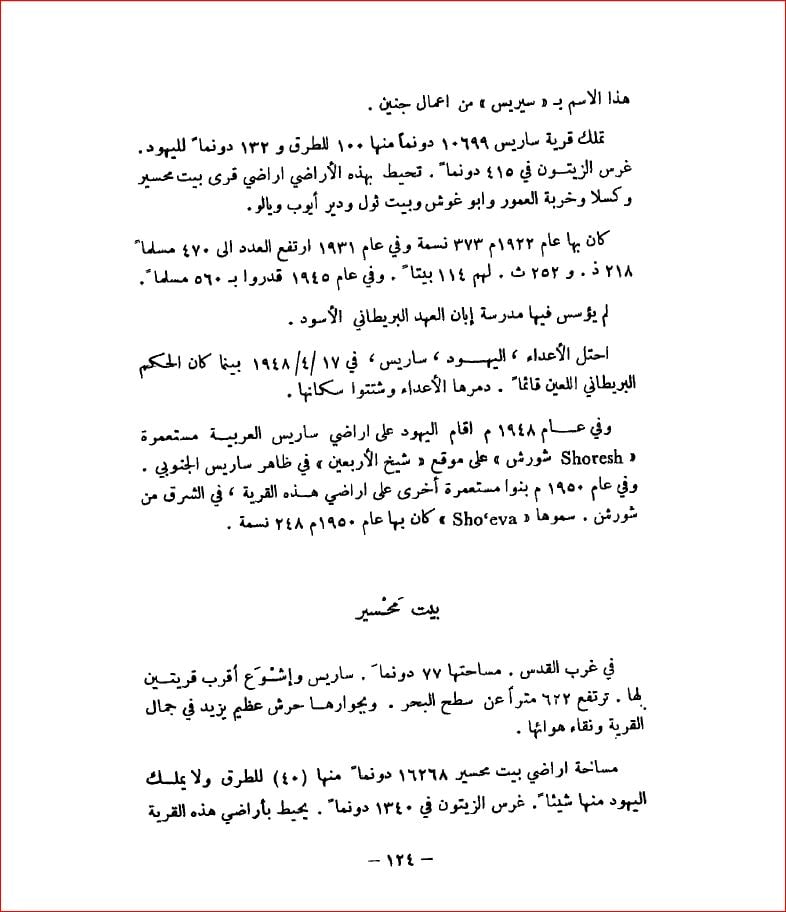 هذا الاسم بـ « سيريس » من اعمال جنين .
تملك قرية ساريس ١٠٦٩٩ دونماً منها ١٠٠ للطرق و ١٣٢ دونماً لليهود .
غرس الزيتـــون في ٤١٥ دونماً . تحيط بهذه الأراضي اراضي قرى بيت محسير
وكسلا وخربة العمور وابو غوش وبيت ثول ودير أيوب ويالو .
كان بها عام ١٩٢٢م ٣٧٣ نسمة وفي عام ١٩٣١ ارتفع العدد الى ٤٧٠ مسلماً
٢١٨ ذ . و ٢٥٢ ث . لهم ١١٤ بيتاً . وفي عام ١٩٤٥ قدروا بـ ٥٦٠ مسلماً .
لم يؤسس فيها مدرسة إبان العهد البريطاني الأسود .
احتل الأعداء ، اليهـــود ، ساريس ، في ١٧ /٤/ ١٩٤٨ بينما كان الحكم
البريطاني اللعين قائماً . دمرها الأعداء وشتتوا سكانها .
وفي عـــام ١٩٤٨ م اقام اليهود على اراضي ساريس العربيـة مستعمرة
« Shoresh شورش » على موقع « شيخ الأربعين » في ظاهر ساريس الجنوبي .
وفي عام ١٩٥٠ م بنوا مستعمرة أخرى على اراضي هـذه القرية ، في الشرق من
شورش . سموها « Sho‘eva » كان بها عام ١٩٥٠م ٢٤٨ نسمة .
بيت مَحْسير
في غرب القدس . مساحتها ٧٧ دونماً . ساريس وإشْوَع أقرب قريتـــين
لها . ترتفع ٦٢٢ متراً عن سطح البحر . وبجوارهـا حرش عظيم يزيد في جمال
القرية ونقاء هوائها .
مساحة اراضي بيت محسير ١٦٢٦٨ دونماً منها (٤٠) للطرق ولا يملـــك
اليهود منها شيئاً . غرس الزيتون في ١٣٤٠ دونماً . يحيط بأراضي هذه القرية
– ١٢٤ –